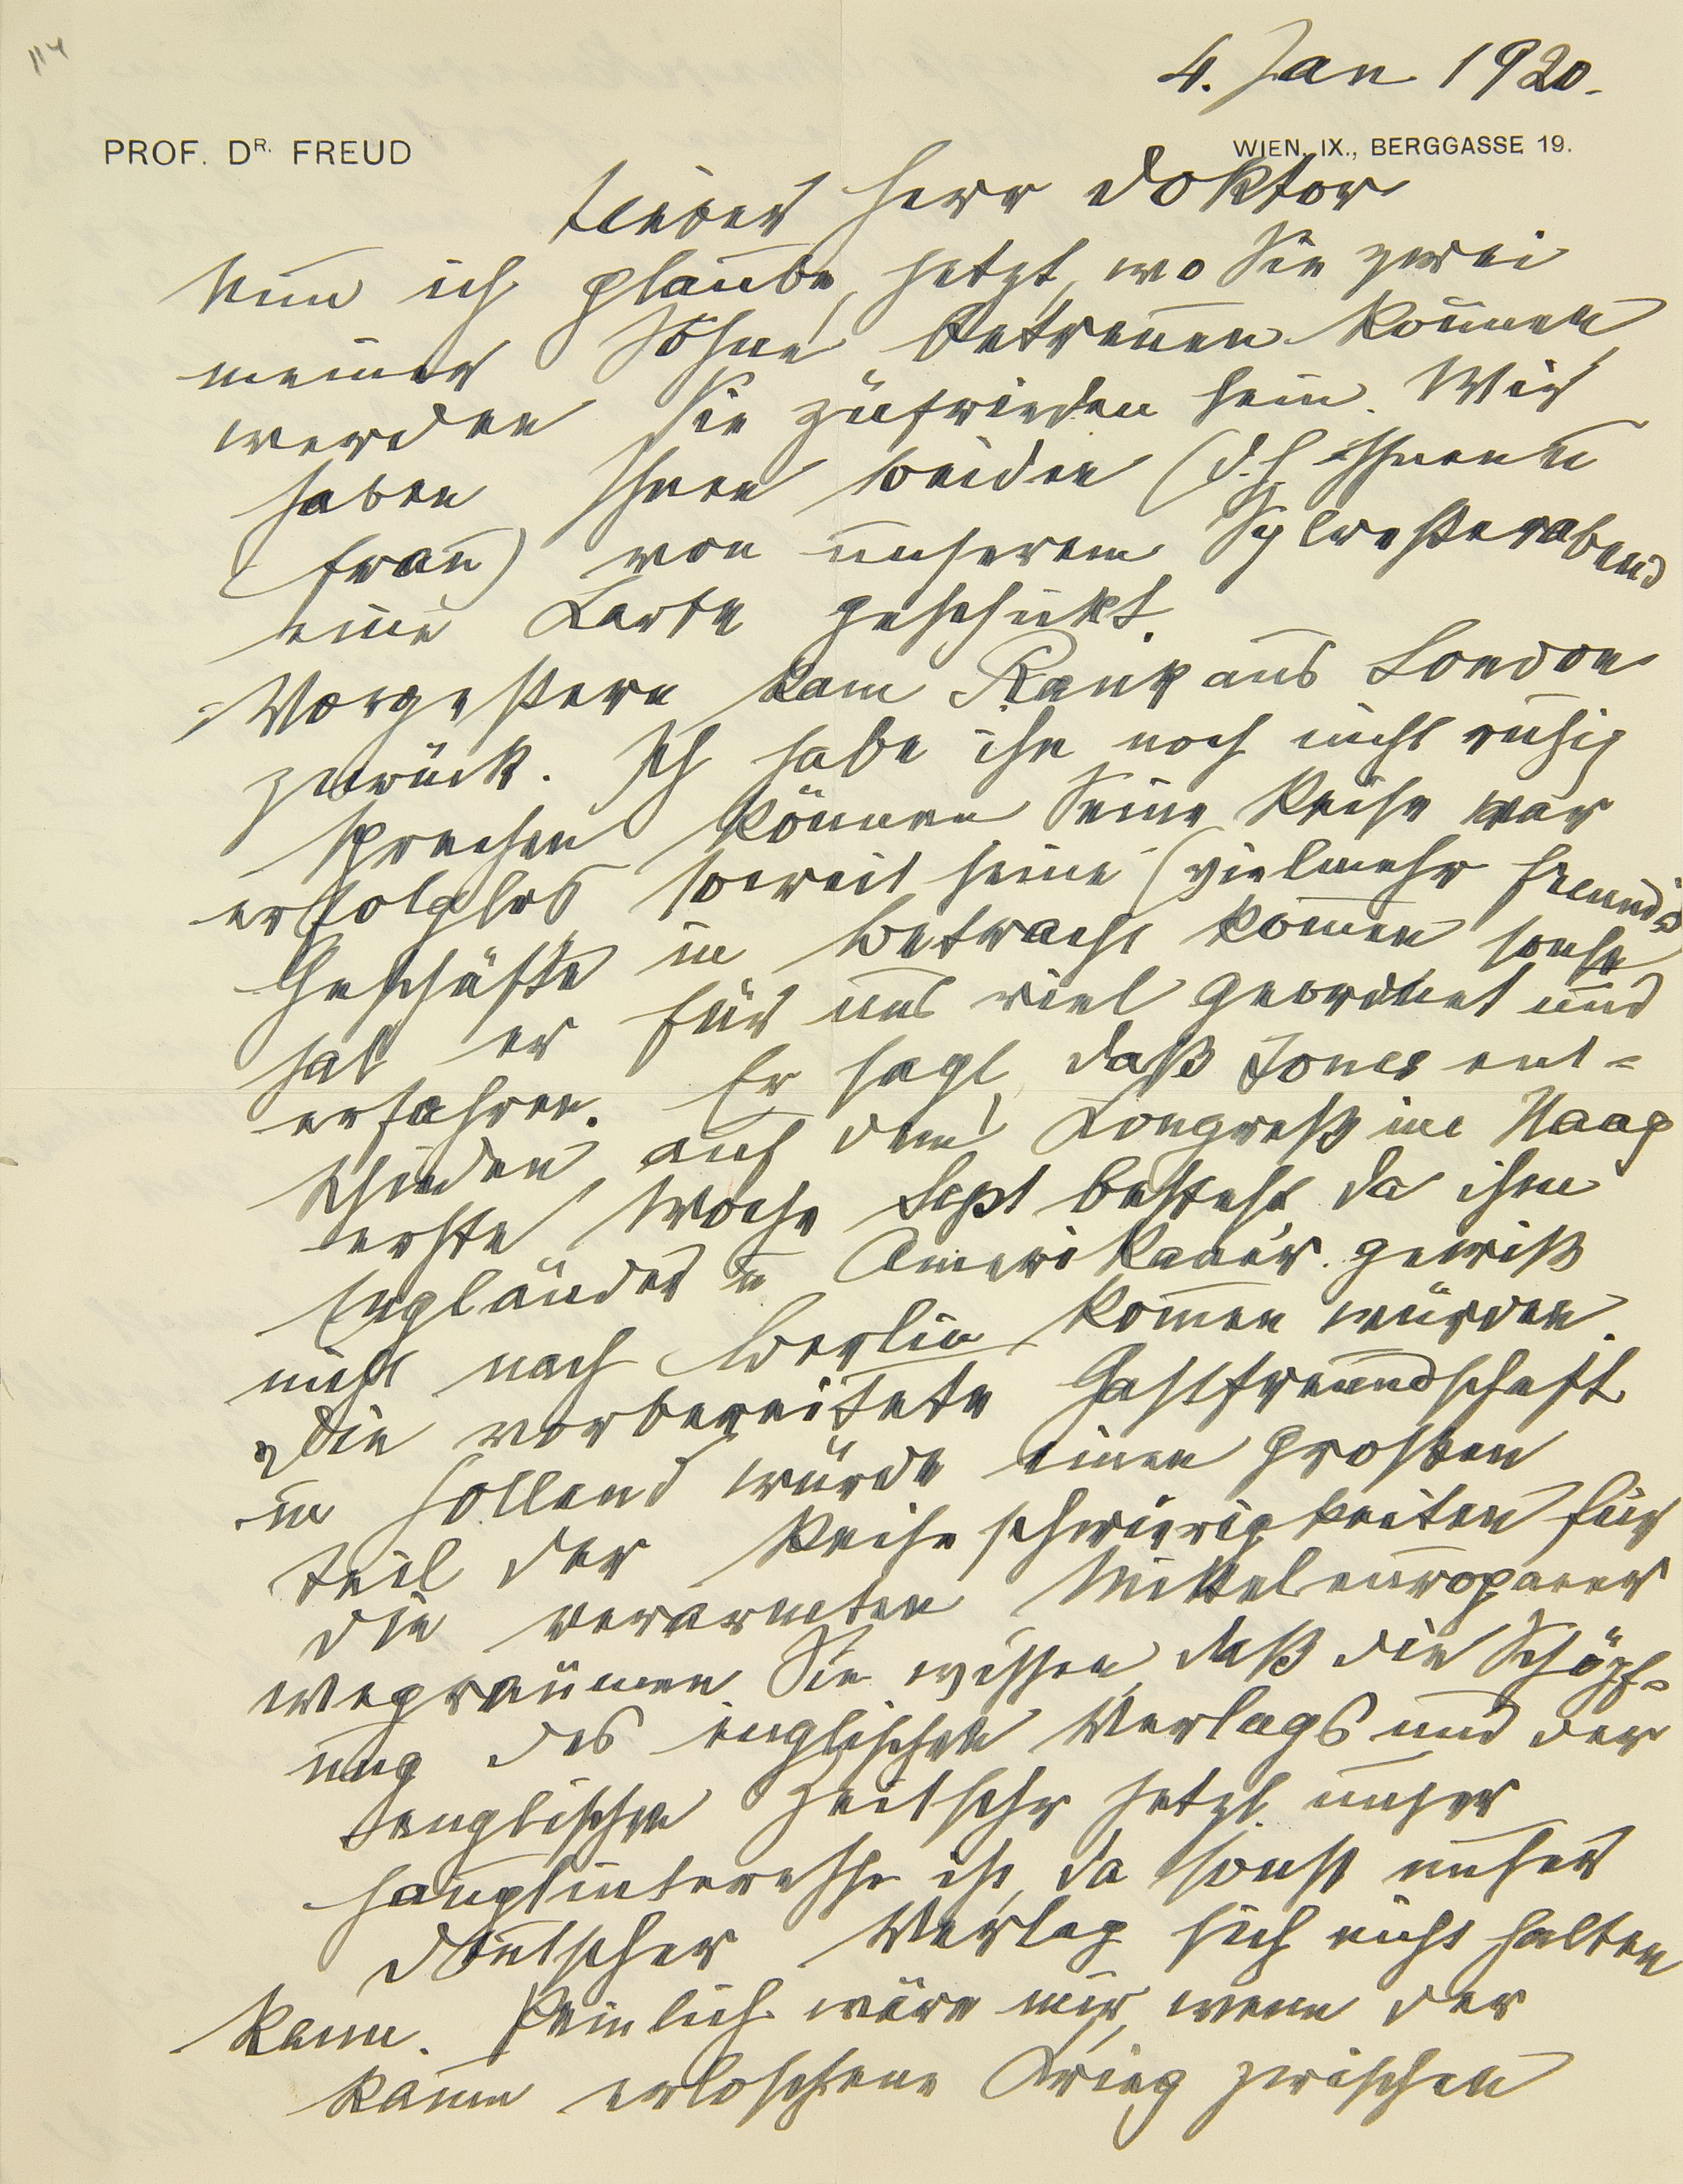 114
4. Jan 1920.
PROF. DR. FREUD
WIEN, IX., BERGGASSE 19.
Lieber Herr Doktor
Nun ich glaube, jetzt, wo Sie zwei
meiner Söhne betreuen können,
werden Sie zufrieden sein. Wir
haben Ihnen beiden (d.h. Ihrer
Frau) von unserem Sylvesterabend
eine Karte geschickt.
Vorgestern kam Rank aus London
zurück. Ich habe ihn noch nicht ruhig
sprechen können. Seine Reise war
erfolglos soweit seine (vielmehr Freund's)
Geschäfte in Betracht kommen, sonst
hat er für uns viel geordnet und
erfahren. Er sagt, daß Jones ent-
schieden auf dem Kongreß im Haag
erste Woche Sept besteht, da ihm
Engländer u Amerikaner gewiß
nicht nach Berlin kommen würden.
Die vorbereitete Gastfreundschaft
in Holland würde einen großen
Teil der Reiseschwierigkeiten für
die verarmten Mitteleuropaeer
wegräumen. Sie wissen, daß die Schöpf-
ung des englischen Verlags und der
englischen Zeitschr jetzt unser
Hauptinteresse ist, da sonst unser
deutscher Verlag sich nicht halten
kann. Peinlich wäre mir, wenn der
kaum erloschene Krieg zwischen